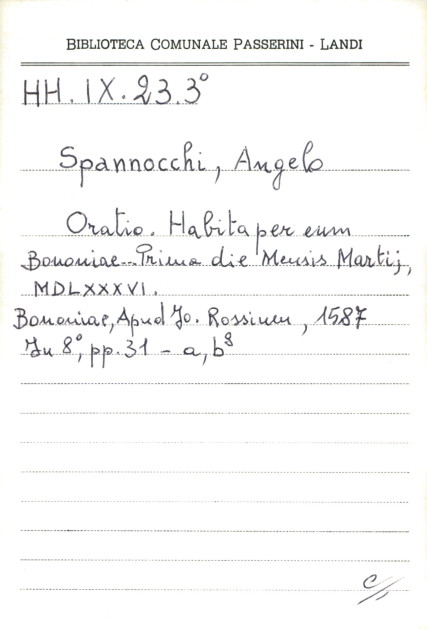 BIBLIOTECA COMUNALE PASSERINI - LANDI
HH. IX. 23. 3°
Spannocchi, Angelo
Oratio. Habita per eum
Bononiae... Prima die Mensis Martij,
MDLXXXVI.
Bononiae, Apud Jo. Rossium, 1587
In 8°, pp. 31 - a, b⁸